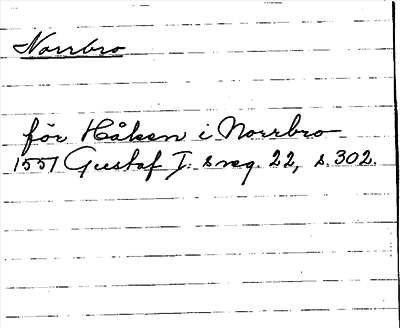 Norrbro
för Håkan i Norrbro
1557 Gustaf I:s reg. 22, s. 302.